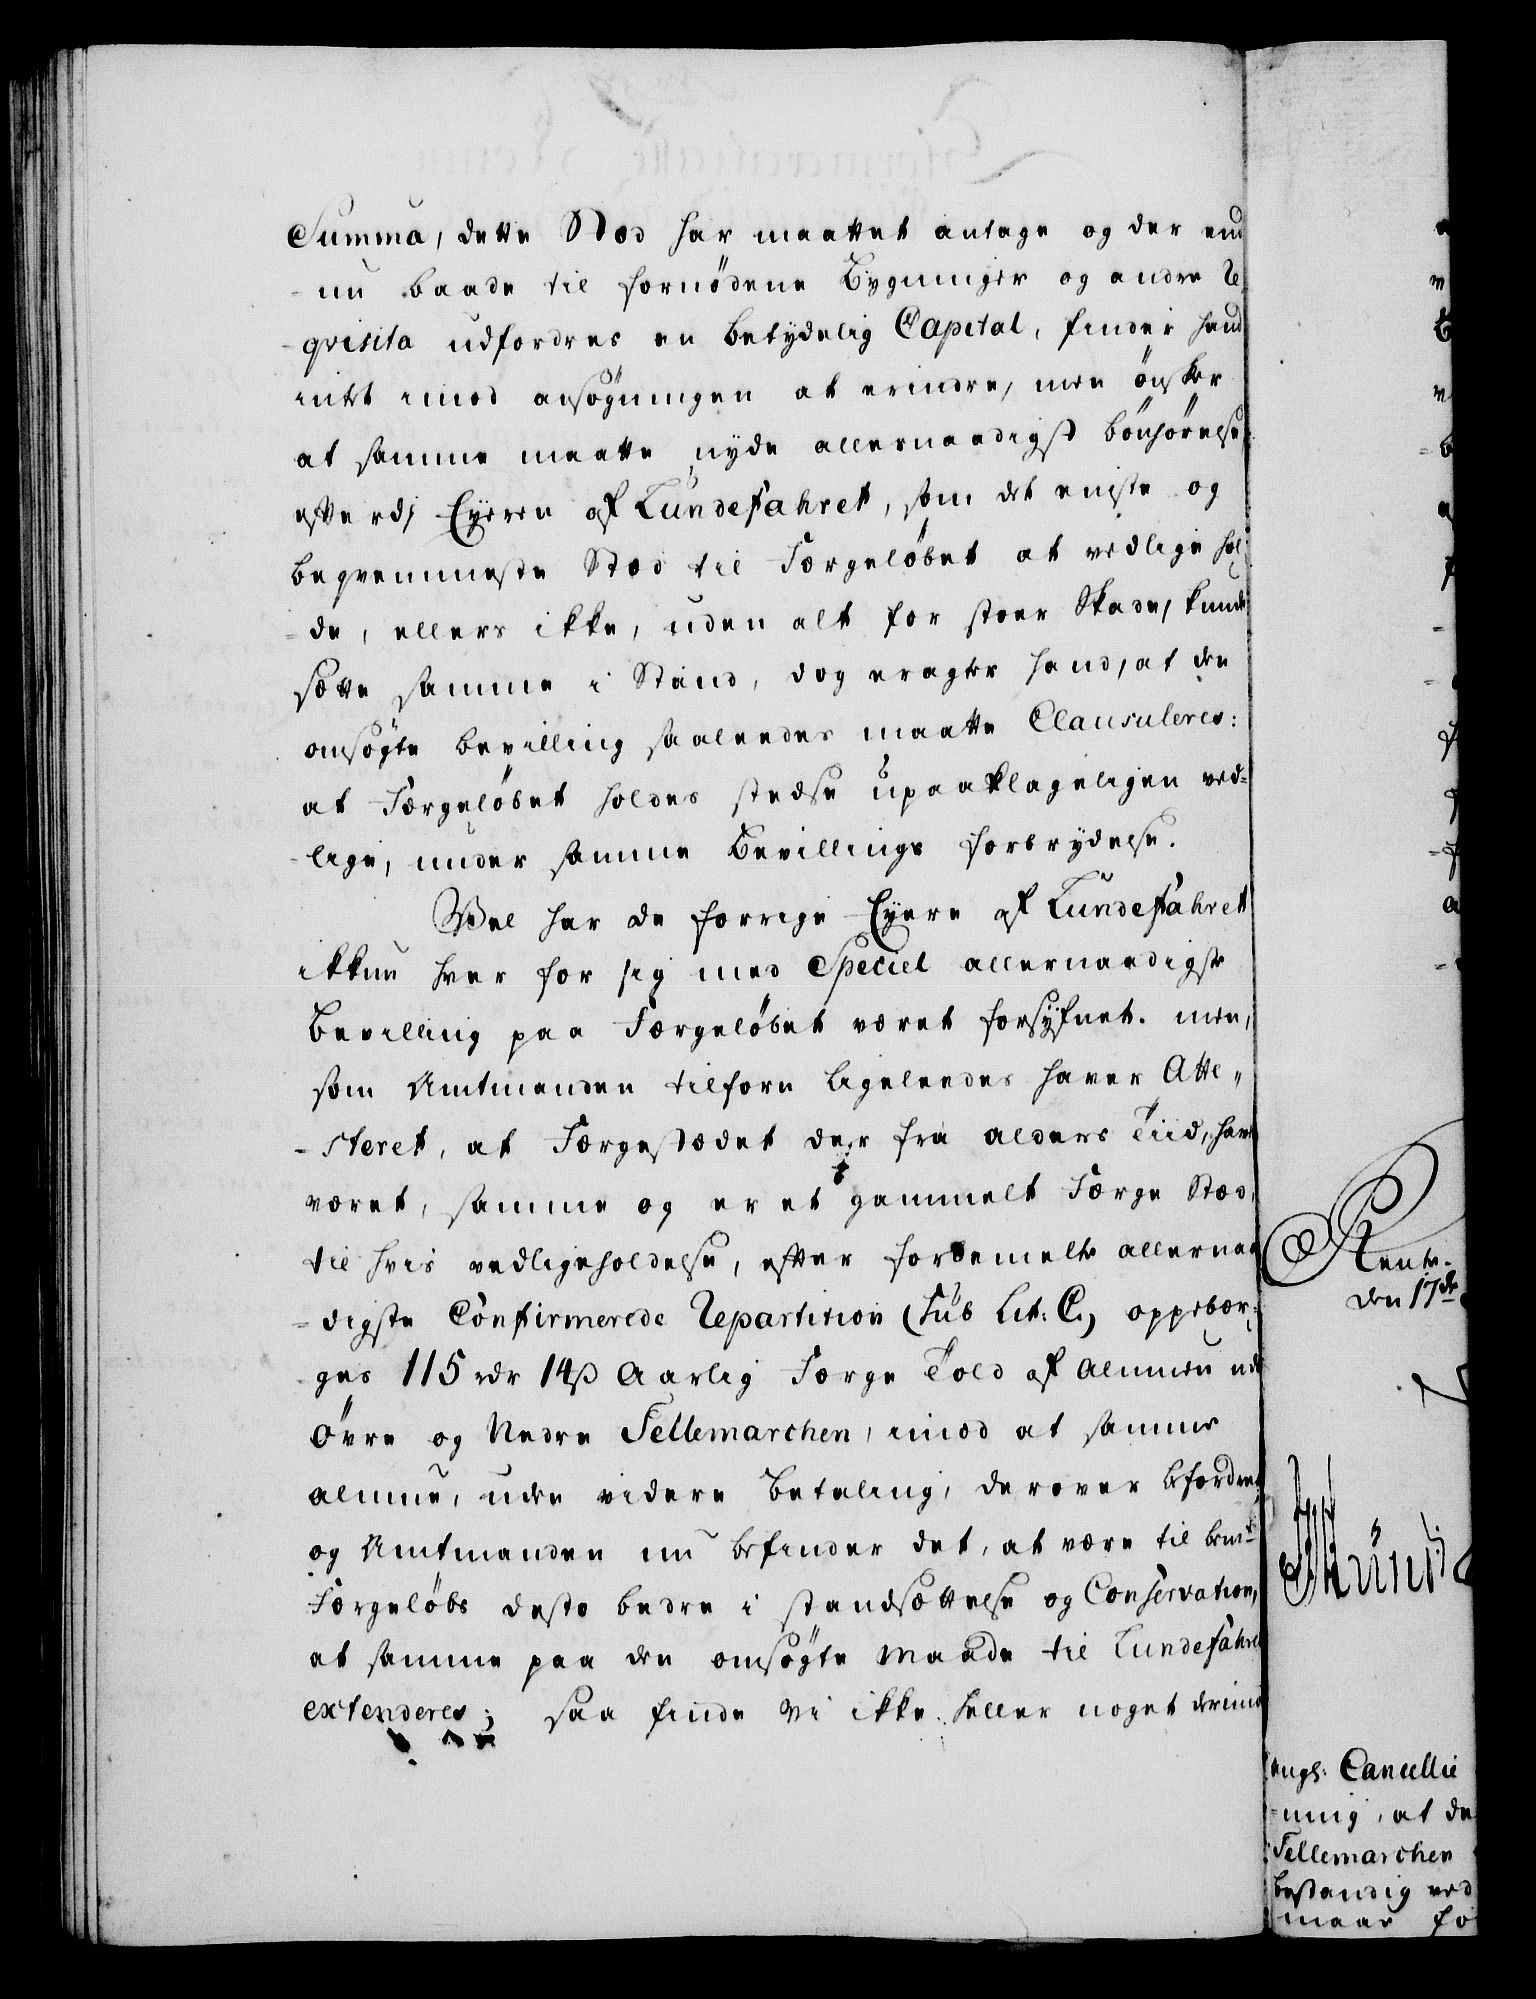 Summa, dette Stæd har maattet antage og der end
- nu baade til fornødene Bygninger og andre Re
- qvisita udfordres en betydelig Capital, finder hand
intet imod ansøgningen at erindre, men ønsker
at samme maatte nyde allernaadigst bønhørelse,
efterdj Eyeren af Lundefahret, som det eniste og
beqvemmeste Stæd til Færgeløbet at vedlige hol-
- de, ellers ikke, uden alt for stoer Skade, kunde
sætte samme i Stand, dog eragter hand, at den
omsøgte bevilling saaleedes maatte Clausuleres:
at Færgeløbet holdes stedse upaaklageligen ved-
- lige, under samme Bevillings forbrydelse.
Vel har de forrige Eyere af Lundefahret
ikkun hver for sig med Speciel allernaadigste
Bevilling paa Færgeløbet været forsÿfnet. men,
som Amtmanden tilforn ligeleedes haver Atte-
- steret, at Færgestædet der fra alders Tiid, har
været, samme og er et gammelt Færge Stæd,
til hvis vedligeholdelse, efter forbemelte allernaa
- digste Confirmerede Repartition (Sub Lit: C.) oppebær-
- ges 115 rdr 14 ß Aarlig Færge Told af Almuen ude
Øvre og Nedre Tellemarchen, imod at samme
almue, uden videre Betaling, derover befordres
og Amtmanden nu befinder det, at være til bemte
Færgeløbs desto bedre i standsættelse og Conservation,
at samme paa den omsøgte Maade til Lundefahre
extenderes; saa finde Vi ikke heller noget derimo
Rente-
den 17de
engl: Cancellie
- ning, at de
Tellemarchen
bestandig ved
maae fo